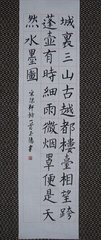 城裏三山古越都樓臺相望跨
蓬壺有時細雨微烟罩便是天
然水墨圖
宋陳軒詩
書